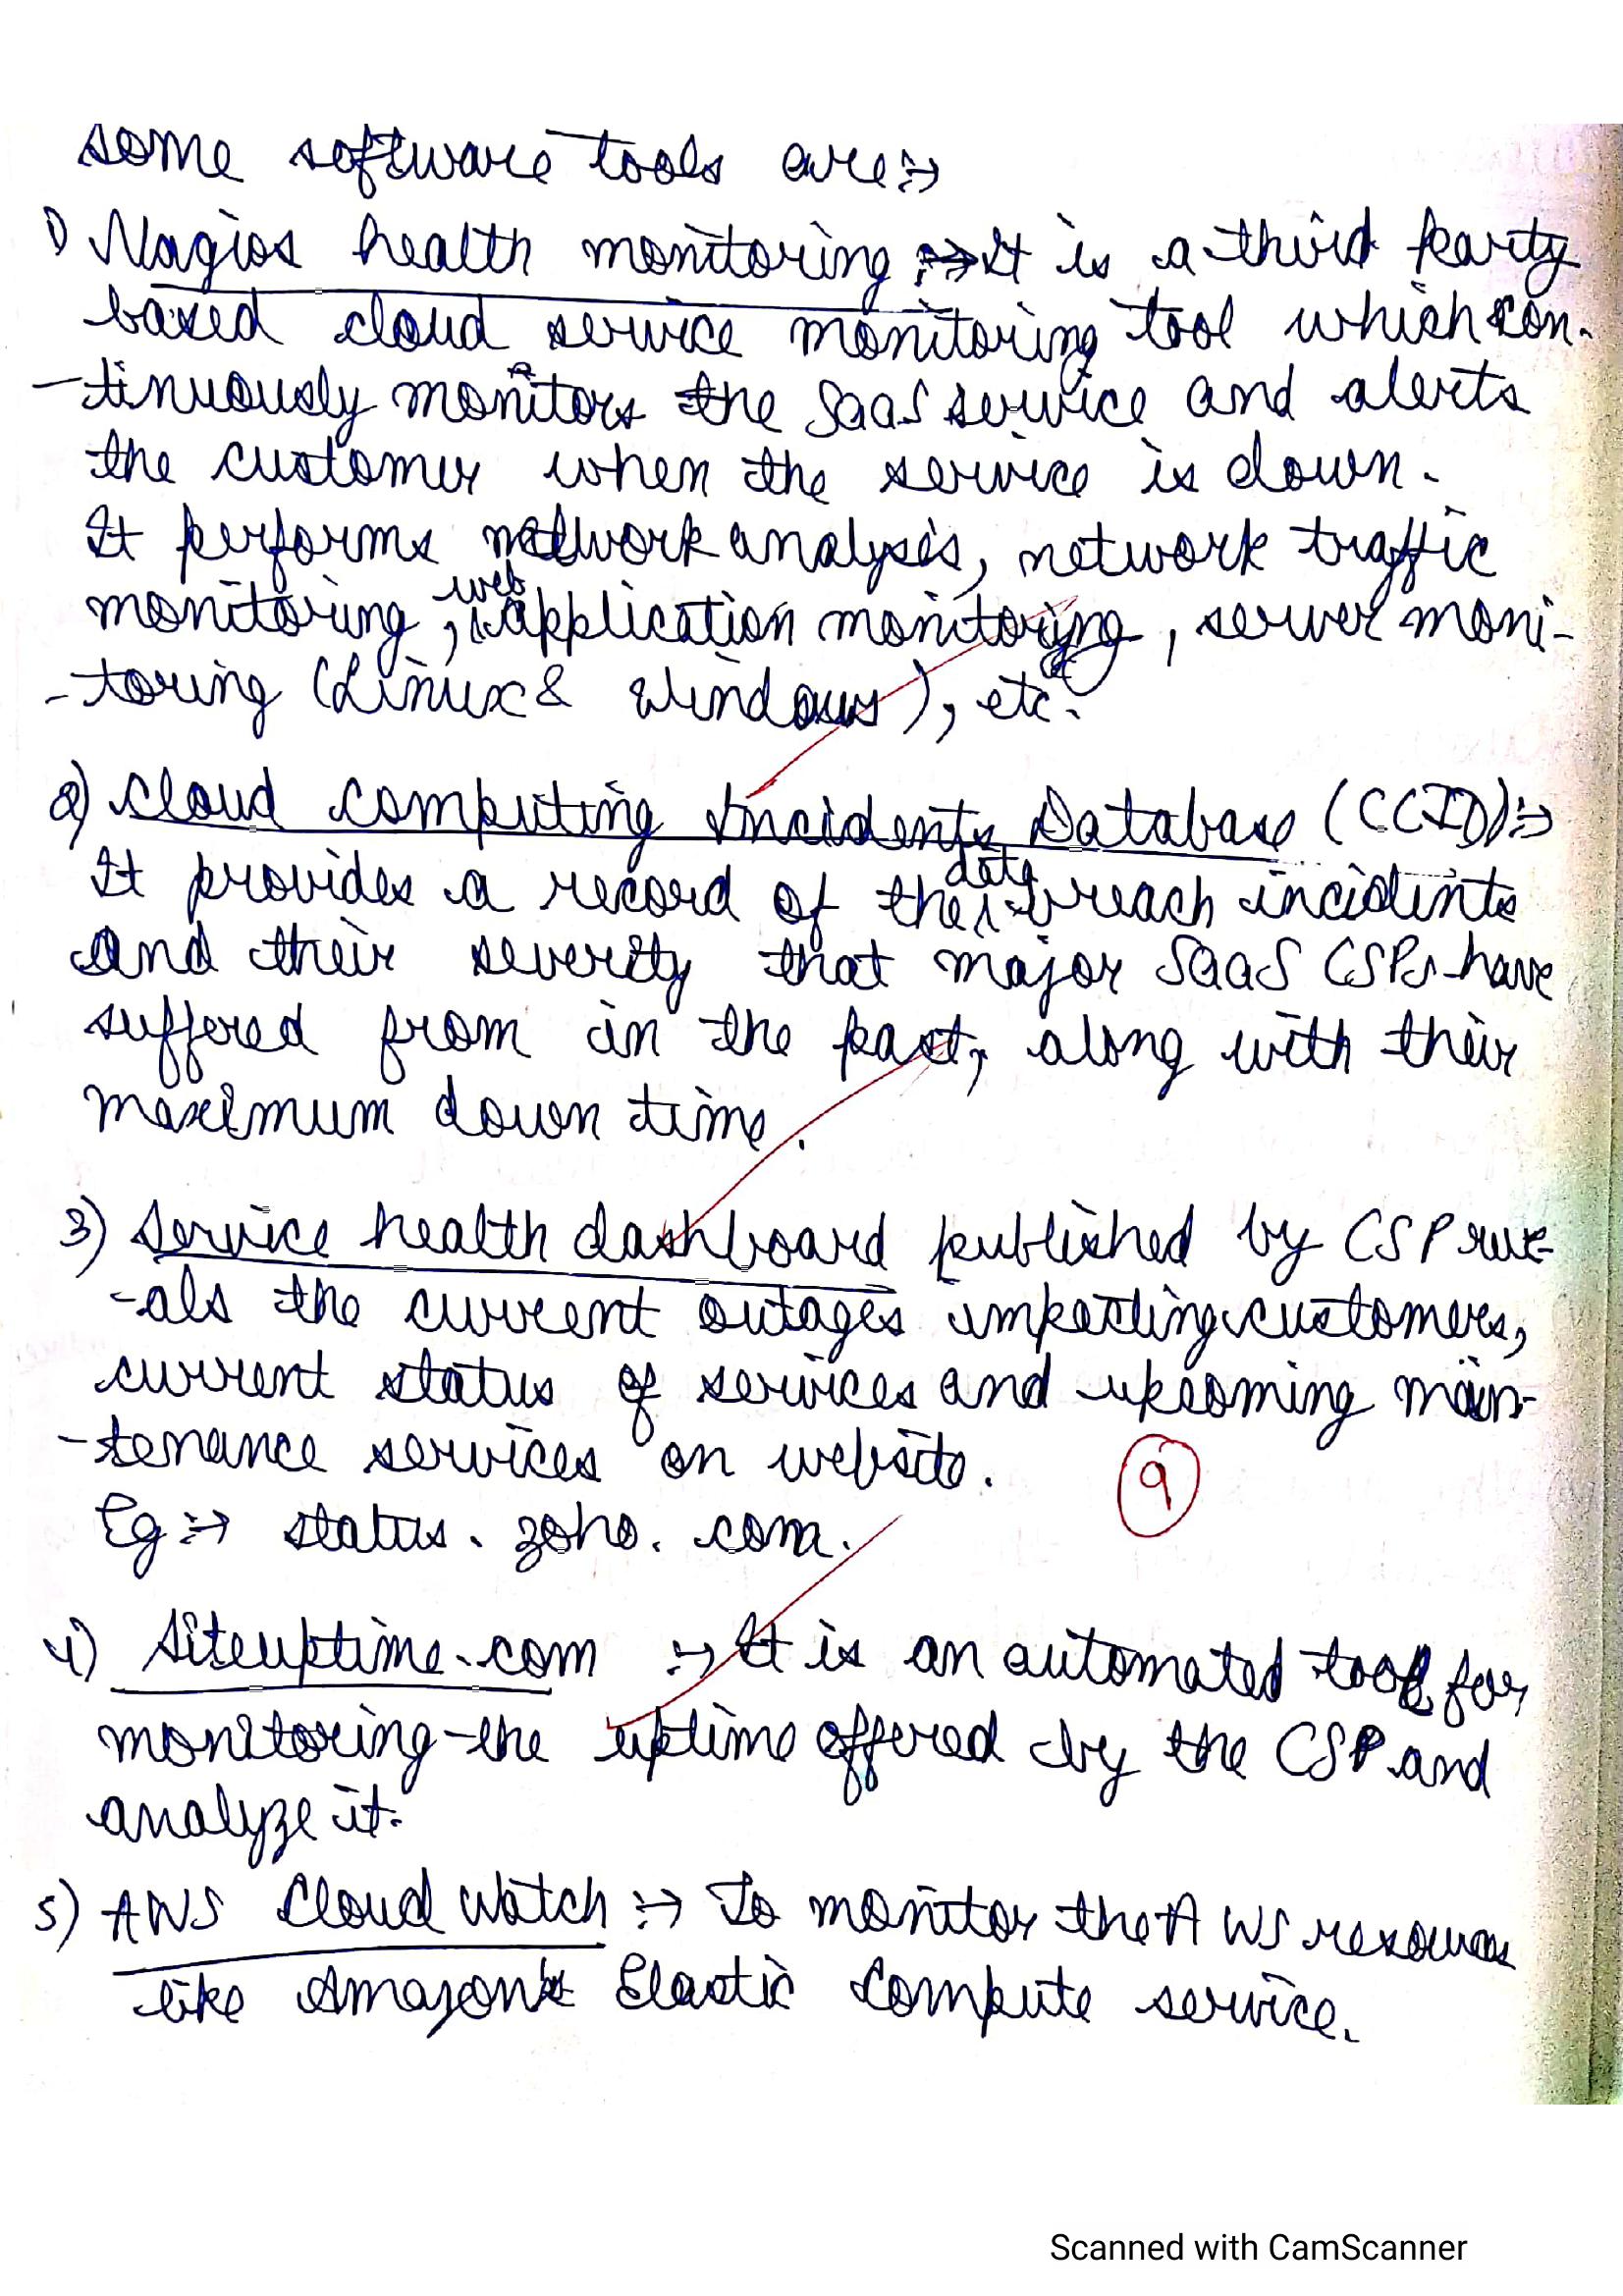 some software tools are :→
1) Nagios health monitoring :→ It is a third party
based cloud service monitoring tool which con-
-tinuously monitors the SaaS service and alerts
the customer when the service is down.
It performs network analysis, network traffic
monitoring, web application monitoring, server moni-
-toring (Linux & Windows), etc.
2) Cloud Computing Incidents Database (CCID) :→
It provides a record of the data breach incidents
and their severity that major SaaS CSPs have
suffered from in the past, along with their
maximum down time.
3) Service health dashboard published by CSP reve-
-als the current outages impacting customers,
current status of services and upcoming main-
-tenance services on website.
9
Eg :→ status.zoho.com.
4) Siteuptime.com :→ It is an automated tool for
monitoring the uptime offered by the CSP and
analyze it.
5) AWS Cloud Watch :→ To monitor the AWS resources
like Amazon's Elastic Compute service.
Scanned with CamScanner